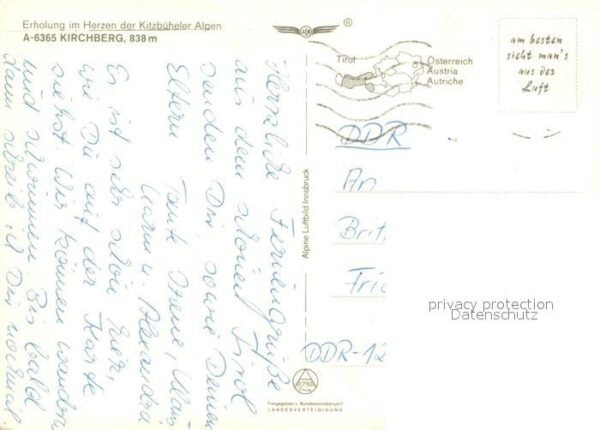 Erholung im Herzen der Kitzbüheler Alpen
A-6365 KIRCHBERG, 838 m
Herzliche Feriengrüße
aus dem schönen Tirol
senden Dir, sowie Deinen
Eltern Tante Irene, Klaus
Karin u. Alexandra
Es ist sehr schön hier,
wie Du auf der Karte
siehst. Wir können wandern
und schwimmen. Bis bald
dann schreib ich Dir nochmal.
ALPINE
®
Tirol
Österreich
Austria
Autriche
am besten
sieht man's
aus der
Luft
DDR
An
Brit
Frie
DDR-12
Alpine Luftbild Innsbruck
ALPINE
Freigegeben v. Bundesministerium f.
LANDESVERTEIDIGUNG
privacy protection
Datenschutz